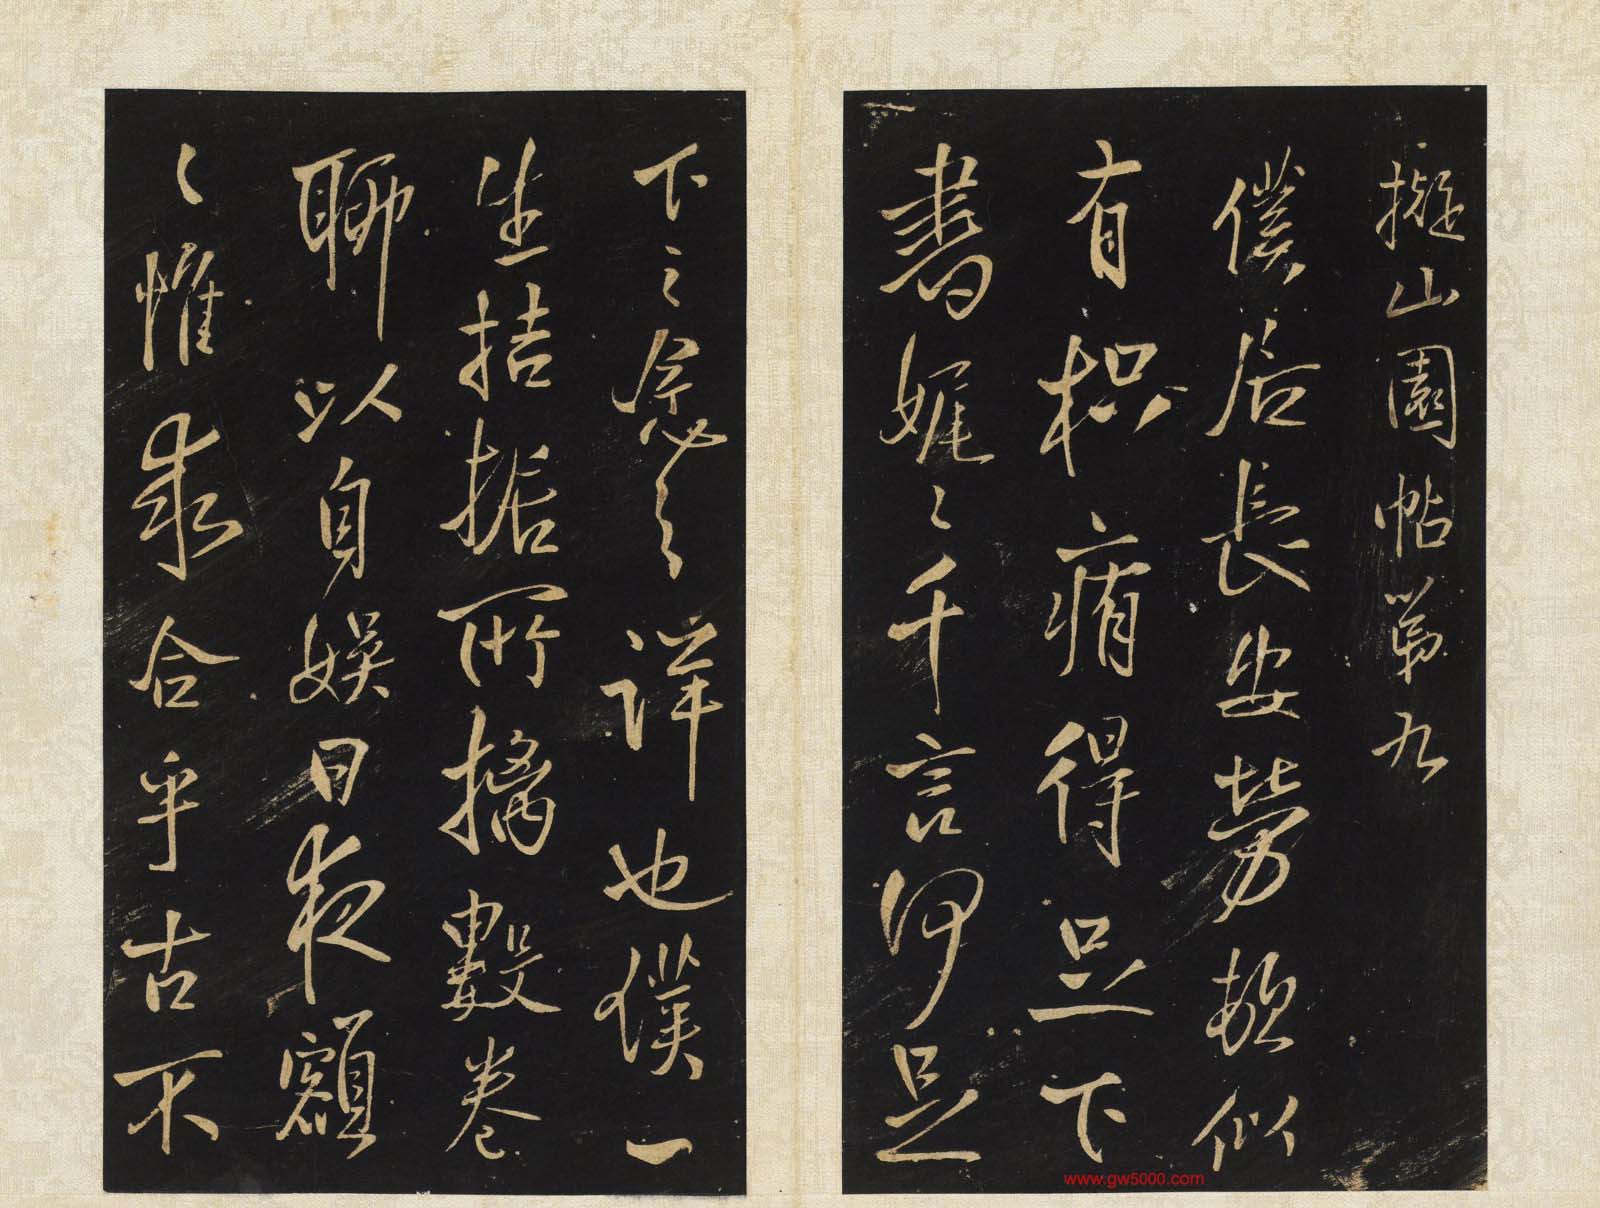 擬山園帖第九
僕居長安勞頓似
有枳痏得足下
書娓〻千言何足
下之念之詳也僕一
生拮据所摛數卷
聊以自娛日夜額
〻惟求合乎古不
www.gw5000.com